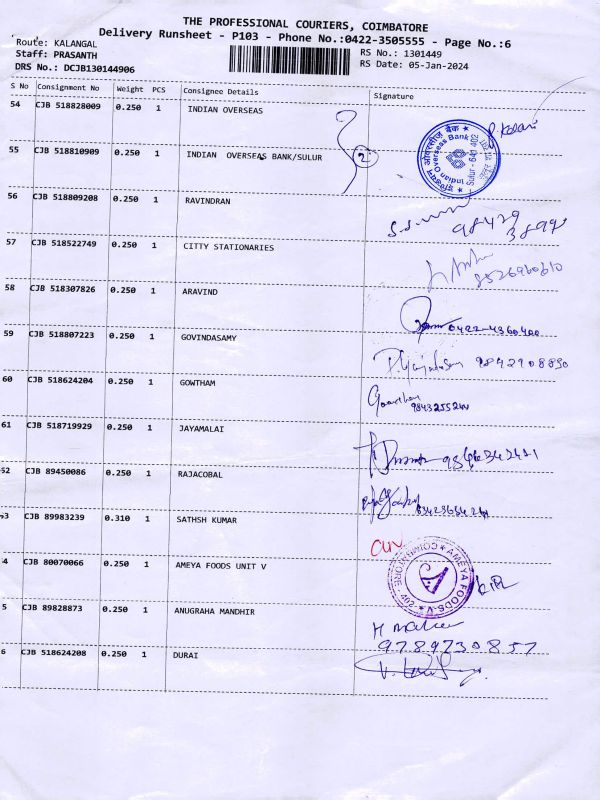 THE PROFESSIONAL COURIERS, COIMBATORE
Delivery Runsheet - P103 - Phone No.:0422-3505555 - Page No.:6
Route: KALANGAL
Staff: PRASANTH
DRS No.: DCJB130144906
RS No.: 1301449
RS Date: 05-Jan-2024
S No Consignment No Weight PCS Consignee Details Signature
54 CJB 518828009 0.250 1 INDIAN OVERSEAS
55 CJB 518810909 0.250 1 INDIAN OVERSEAS BANK/SULUR 2
Indian Overseas Bank
Sulur - 641 402
56 CJB 518809208 0.250 1 RAVINDRAN
57 CJB 518522749 0.250 1 CITTY STATIONARIES
8526960610
58 CJB 518307826 0.250 1 ARAVIND 0422-4360400
59 CJB 518807223 0.250 1 GOVINDASAMY 9842908890
60 CJB 518624204 0.250 1 GOWTHAM Gowtham
61 CJB 518719929 0.250 1 JAYAMALAI
52 CJB 89450086 0.250 1 RAJACOBAL
53 CJB 89983239 0.310 1 SATHSH KUMAR
4 CJB 80070066 0.250 1 AMEYA FOODS UNIT V
AMEYA FOODS-V
COIMBATORE
402
5 CJB 89828873 0.250 1 ANUGRAHA MANDHIR
9789730857
6 CJB 518624208 0.250 1 DURAI